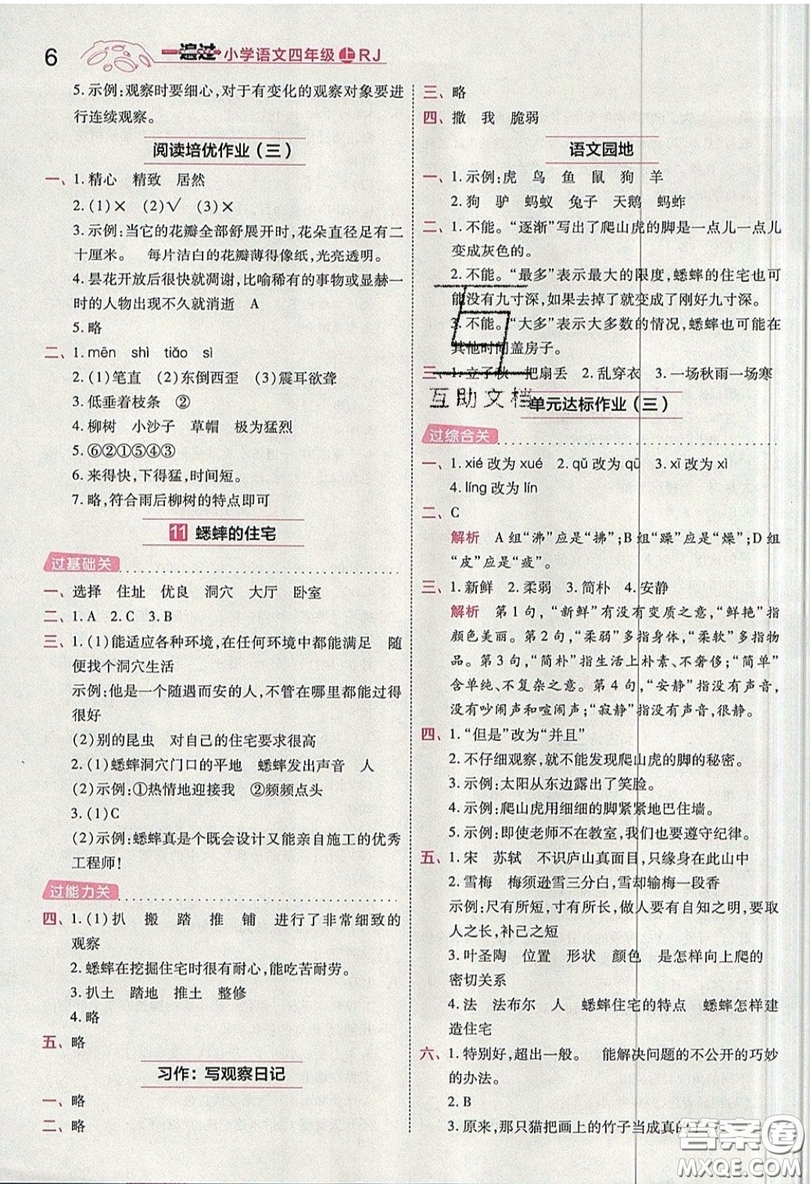 6
一遍过 小学语文四年级 上 RJ
5. 示例:观察时要细心,对于有变化的观察对象要进
行连续观察。
阅读培优作业(三)
一、1. 精心 精致 居然
2. (1)× (2)√ (3)×
3. 示例:当它的花瓣全部舒展开时,花朵直径足有二
十厘米。 每片洁白的花瓣薄得像纸,光亮透明。
4. 昙花开放后很快就凋谢,比喻稀有的事物或显赫一
时的人物出现不久就消逝 A
5. 略
二、1. mēn shì tiǎo sì
2. (1)笔直 (2)东倒西歪 (3)震耳欲聋
3. 低垂着枝条 ②
4. 柳树 小沙子 草帽 极为猛烈
5. ⑥②①⑤④③
6. 来得快,下得猛,时间短。
7. 略,符合雨后柳树的特点即可
11 蟋蟀的住宅
过基础关
一、选择 住址 优良 洞穴 大厅 卧室
二、1. A 2. C 3. B
三、1. (1)能适应各种环境,在任何环境中都能满足 随
便找个洞穴生活
示例:他是一个随遇而安的人,不管在哪里都能过得
很好
(2)别的昆虫 对自己的住宅不肯随遇而安
2. (1)蟋蟀洞穴门口的平地 蟋蟀发出声音 人
(2)示例:①热情地迎接我 ②频频点头
3. (1)C
(2)示例:蟋蟀真是个既会设计又能亲自施工的优秀
工程师!
过能力关
四、1. (1)扒 搬 踏 推 铺 进行了非常细致的
观察
2. 蟋蟀在挖掘住宅时很有耐心,能吃苦耐劳。
3. 扒土 踏地 推土 整修
4. 略
五、略
习作:写观察日记
一、略
二、略
三、略
四、撒 我 脆弱
语文园地
一、1. 示例:虎 鸟 鱼 鼠 狗 羊
2. 狗 驴 蚂蚁 兔子 天鹅 蚂蚱
二、1. 不能。“逐渐”写出了爬山虎的脚是一点儿一点儿
变成灰色的。
2. 不能。“最多”表示最大的限度,蟋蟀的住宅也可
能没有九寸深,如果去掉了就变成了刚好九寸深。
3. 不能。“大多”表示大多数的情况,蟋蟀也可能在
其他时间盖房子。
三、1. 立了秋 把扇丢 2. 乱穿衣 3. 一场秋雨一场寒
互助文档
单元达标作业(三)
过综合关
一、1. xié 改为 xué 2. qǔ 改为 qū 3. xī 改为 xì
4. líng 改为 lín
二、C
解析 A 组“沸”应是“拂”;B 组“躁”应是“燥”;D 组
“皮”应是“疲”。
三、1. 新鲜 2. 柔弱 3. 简朴 4. 安静
解析 第 1 句,“新鲜”有没有变质之意,“鲜艳”指
颜色美丽。第 2 句,“柔弱”多形容身体,“柔软”多形
容物品。第 3 句,“简朴”指生活上朴素、不奢侈;“简单”
含单纯、不复杂之意。第 4 句,“安静”指没有声音,
没有吵闹声和喧闹声;“寂静”指没有声音,很静。
四、1. “但是”改为“并且”
2. 不仔细观察,就不能发现爬山虎的脚的秘密。
3. 示例:太阳从东边露出了笑脸。
4. 示例:爬山虎用细细的脚紧紧地巴住墙。
5. 示例:即使老师不在教室,我们也要遵守纪律。
五、1. 宋 苏轼 不识庐山真面目,只缘身在此山中。
2. 雪梅 梅须逊雪三分白,雪却输梅一段香
示例:尺有所短,寸有所长,做人要谦虚大度,要取人
之长,补己之短
3. 叶圣陶 位置 形状 颜色 是怎样向上爬的
密切关系
4. 法 法布尔 人 蟋蟀住宅的特点 蟋蟀怎样建
造住宅
六、1. 特别好,超出一般。 能解决问题的不公开的巧妙
的办法。
2. B
3. 原来,那只猫把画上的竹子当成真的
答案圈
MXQE.COM